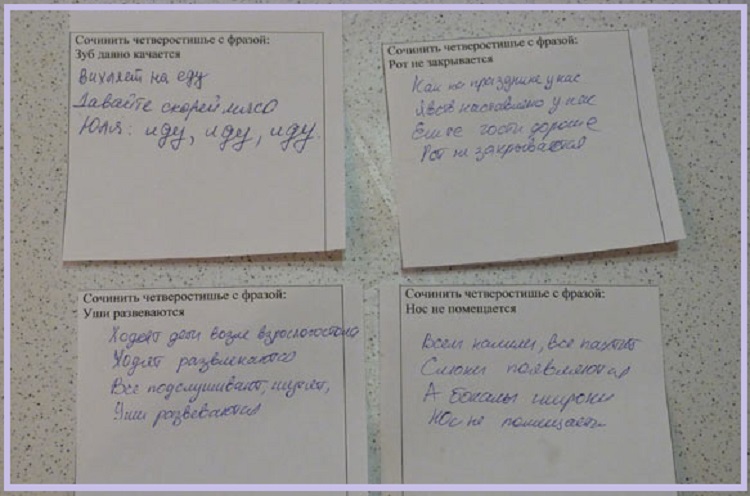 Сочинить четверостишье с фразой:
Зуб давно качается
Вихляет на еду
Давайте скорей мясо
Юля: иду, иду, иду.
Сочинить четверостишье с фразой:
Рот не закрывается
Как на празднике у нас
Яств наставлено у нас
Ешьте гости дорогие
Рот не закрывается
Сочинить четверостишье с фразой:
Уши развеваются
Ходят дети возле взрослого стола
Ходят развлекаются
Все подслушивают, шутят,
Уши развеваются
Сочинить четверостишье с фразой:
Нос не помещается
Всем налили, все пахтит
Слюнки появляются
А бокалы широки
Нос не помищаетс